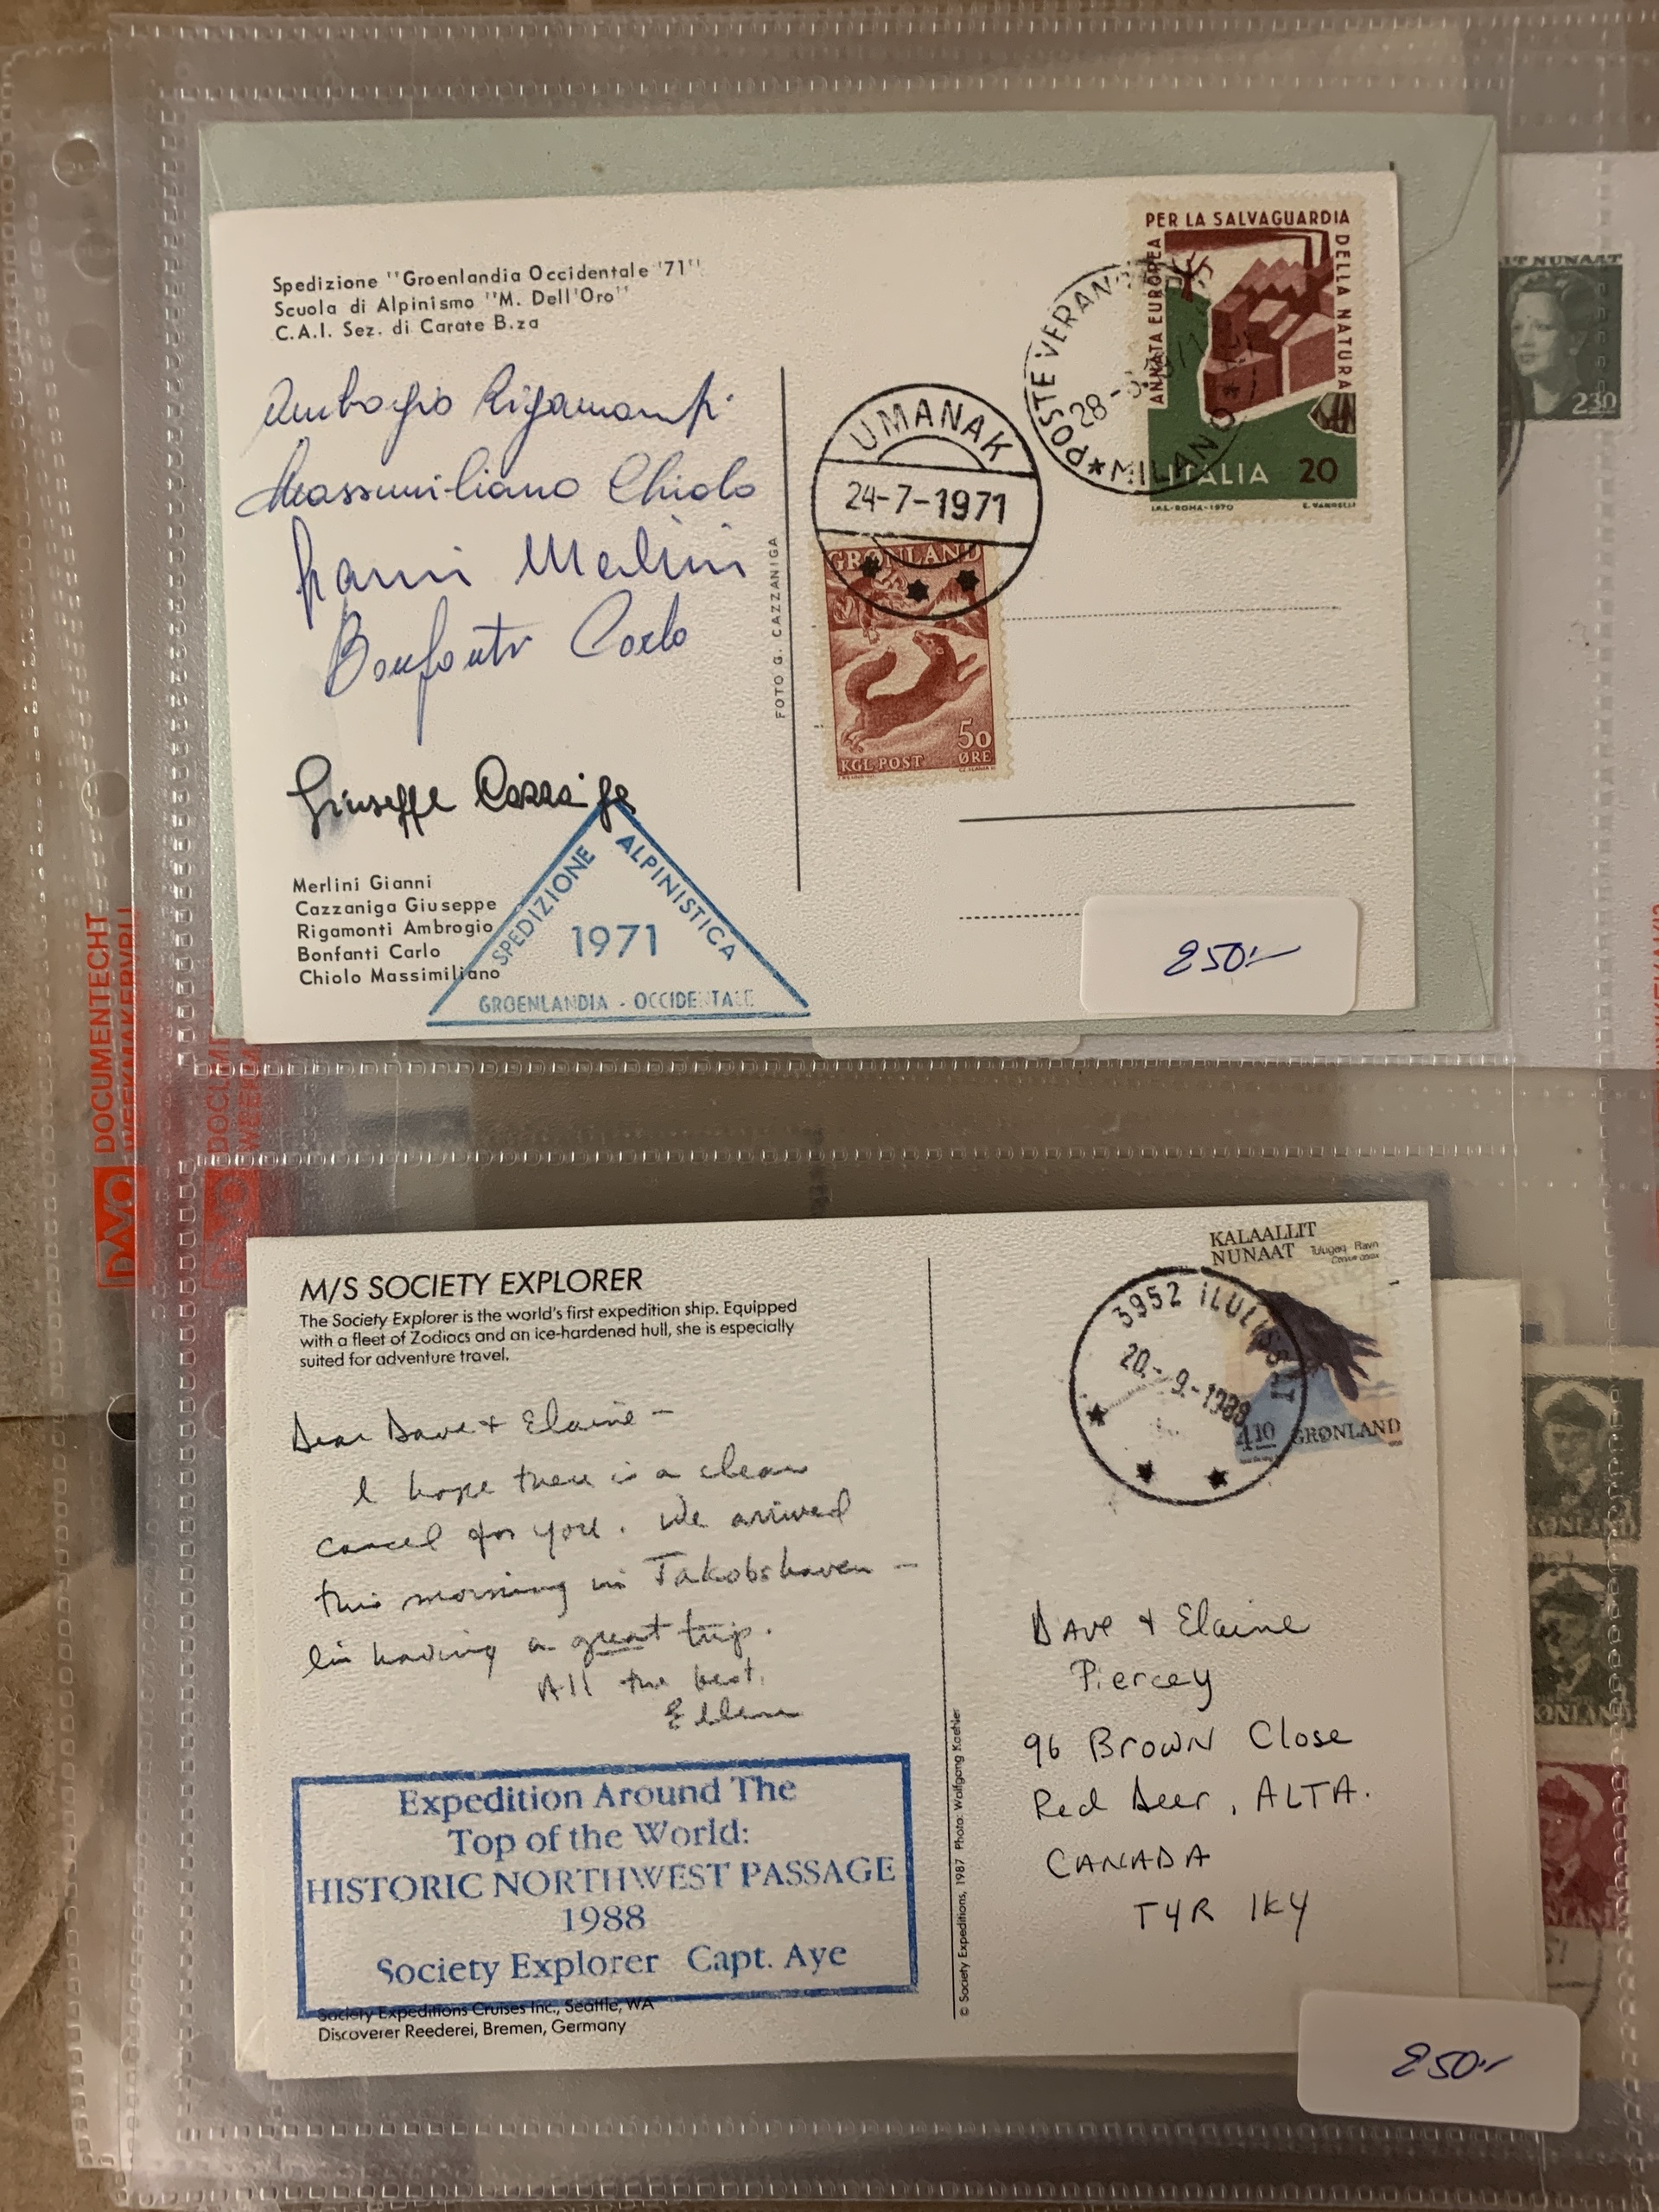 Spedizione "Groenlandia Occidentale '71"
Scuola di Alpinismo "M. Dell'Oro"
C.A.I. Sez. di Carate B.za
Ambrogio Rigamonti
Massimiliano Chiolo
Gianni Merlini
Bonfanti Carlo
Giuseppe Cazzaniga
Merlini Gianni
Cazzaniga Giuseppe
Rigamonti Ambrogio
Bonfanti Carlo
Chiolo Massimiliano
SPEDIZIONE ALPINISTICA
1971
GROENLANDIA - OCCIDENTALE
FOTO G. CAZZANIGA
UMANAK
24-7-1971
GRØNLAND
50
KGL. POST ØRE
POSTE VERANO
28-
* MILANO *
ANNATA EUROPEA PER LA SALVAGUARDIA DELLA NATURA
ITALIA 20
I.P.S.-ROMA-1970 E. VANGELLI
250.-
NUNAAT
230
DAVO DOCUMENTECHT
WEEKMAKERVRIJ
DAVO
M/S SOCIETY EXPLORER
The Society Explorer is the world's first expedition ship. Equipped
with a fleet of Zodiacs and an ice-hardened hull, she is especially
suited for adventure travel.
Dear Dave + Elaine -
I hope there is a clear
cancel for you. We arrived
this morning in Jakobshaven -
I'm having a great trip.
All the best,
Expedition Around The
Top of the World:
HISTORIC NORTHWEST PASSAGE
1988
Society Explorer Capt. Aye
Society Expeditions Cruises Inc., Seattle, WA
Discoverer Reederei, Bremen, Germany
© Society Expeditions, 1987 Photo: Wolfgang Kaehler
KALAALLIT
NUNAAT Tulugaq Ravn
Corvus corax
3952 ILULISSAT
20.-9.-1988
4.10 GRØNLAND
Dave + Elaine
Piercey
96 Brown Close
Red Deer, ALTA.
CANADA
T4R 1K4
250.-
GRØNLAND
GRØNLAND